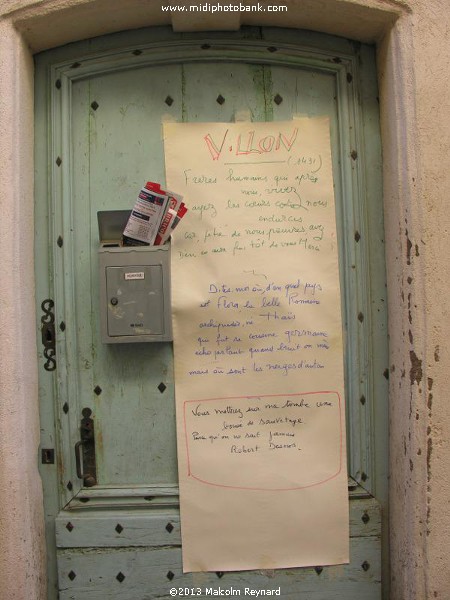 www.midiphotobank.com
VILLON
(1431)
Freres humains qui après
nous vivez
ayez les cœurs contre nous
endurcis
car, pitié de nous pauvres avez
Dites moi où, d'en quel pays
est Flora la belle Romaine
ni Thaïs
qui fut sa cousine germaine
echo parlant quand bruit on
mais où sont les neiges d'antan
Vous mettrez sur ma tombe une
bouée de sauvetage.
Parce qu'on ne sait jamais
Robert Desnos.
©2013 Malcolm Reynard